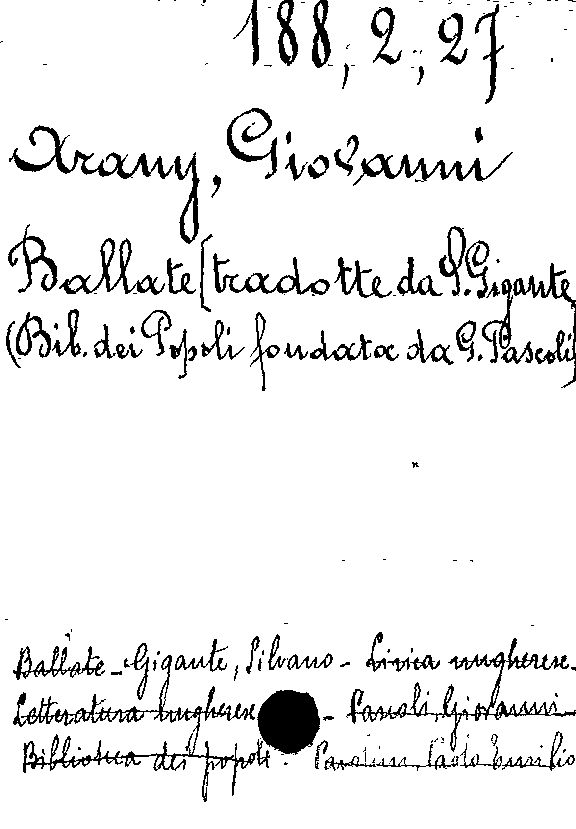 188, 2, 27
Arany, Giovanni
Ballate [tradotte da S. Gigante
(Bib. dei Popoli fondata da G. Pascoli)
Ballate - Gigante, Silvano - Lirica ungherese -
Letteratura ungherese - Pascoli, Giovanni -
Biblioteca dei popoli - Pavolini, Paolo Emilio